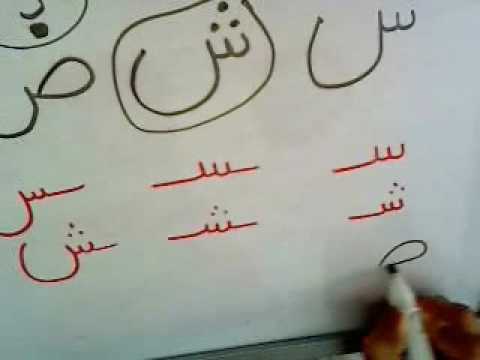 س ش ص
سـ ـسـ ـس
شـ ـشـ ـش